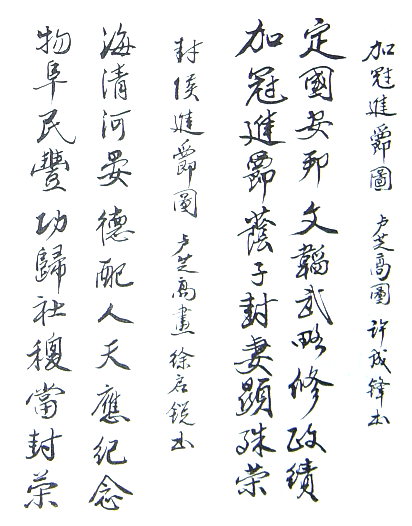 加冠進爵圖 卢芝高圖 许成锋书
定國安邦文韜武略修政績
加冠進爵蔭子封妻顯殊荣
封侯進爵圖 卢芝高畫 徐启锐书
海清河晏德配人天應紀念
物阜民豐功歸社稷當封荣